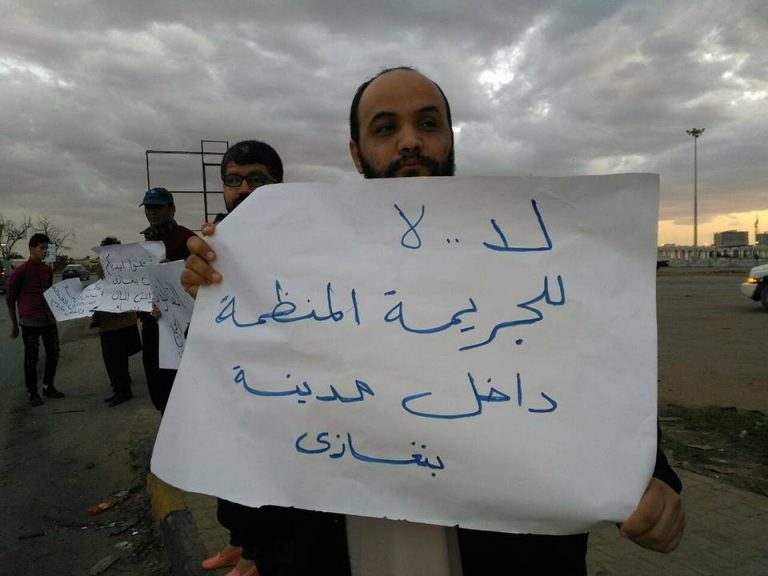 لا .. لا
للجريمة المنظمة
داخل مدينة
بنغازى